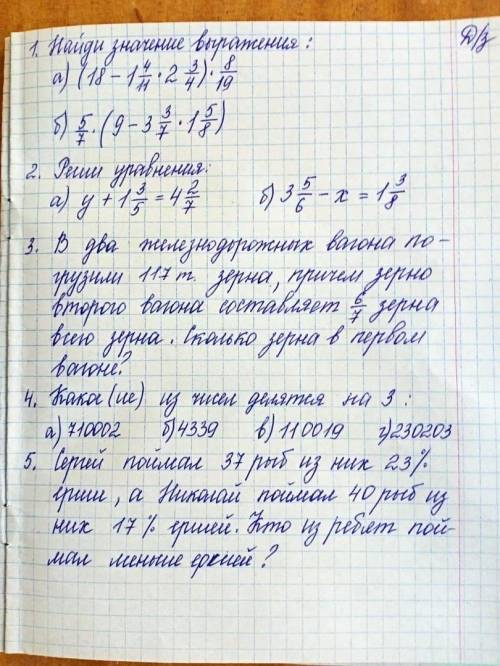 Д/з
1. Найди значение выражения:
а) (18 − 1 4/11 · 2 3/4) · 8/19
б) 5/7 · (9 − 3 3/7 · 1 5/8)
2. Реши уравнения:
а) y + 1 3/5 = 4 2/7 б) 3 5/6 − x = 1 3/8
3. В два железнодорожных вагона по-
грузили 117 т. зерна, причем зерно
второго вагона составляет 6/7 зерна
всего зерна. Сколько зерна в первом
вагоне?
4. Какое (ие) из чисел делятся на 3:
а) 710002 б) 4339 в) 110019 г) 230203
5. Сергей поймал 37 рыб из них 23%
ерши, а Николай поймал 40 рыб из
них 17% ершей. Кто из ребят пой-
мал меньше ершей?